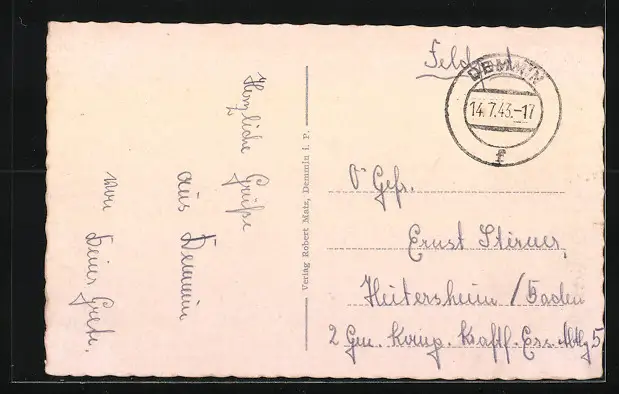 Herzliche Grüße
aus Demmin
von Deiner Grete.
Verlag Robert Matz, Demmin i. P.
DEMMIN
14.7.43.-17
f
O' Gefr.
Ernst
Heitersheim / Baden
2 Gen. Komp. Kraftf. Ers. Abtlg 5